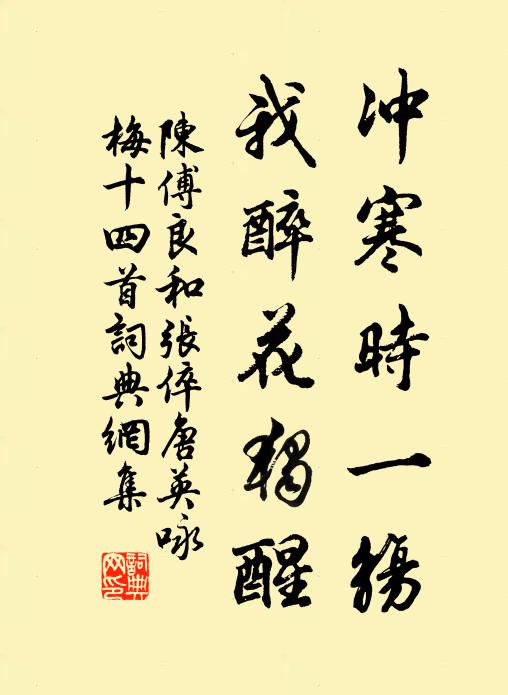 冲寒時一觴
我醉花獨醒
陳傅良和張倅唐英咏
梅十四首詞典網集
詞典
网印